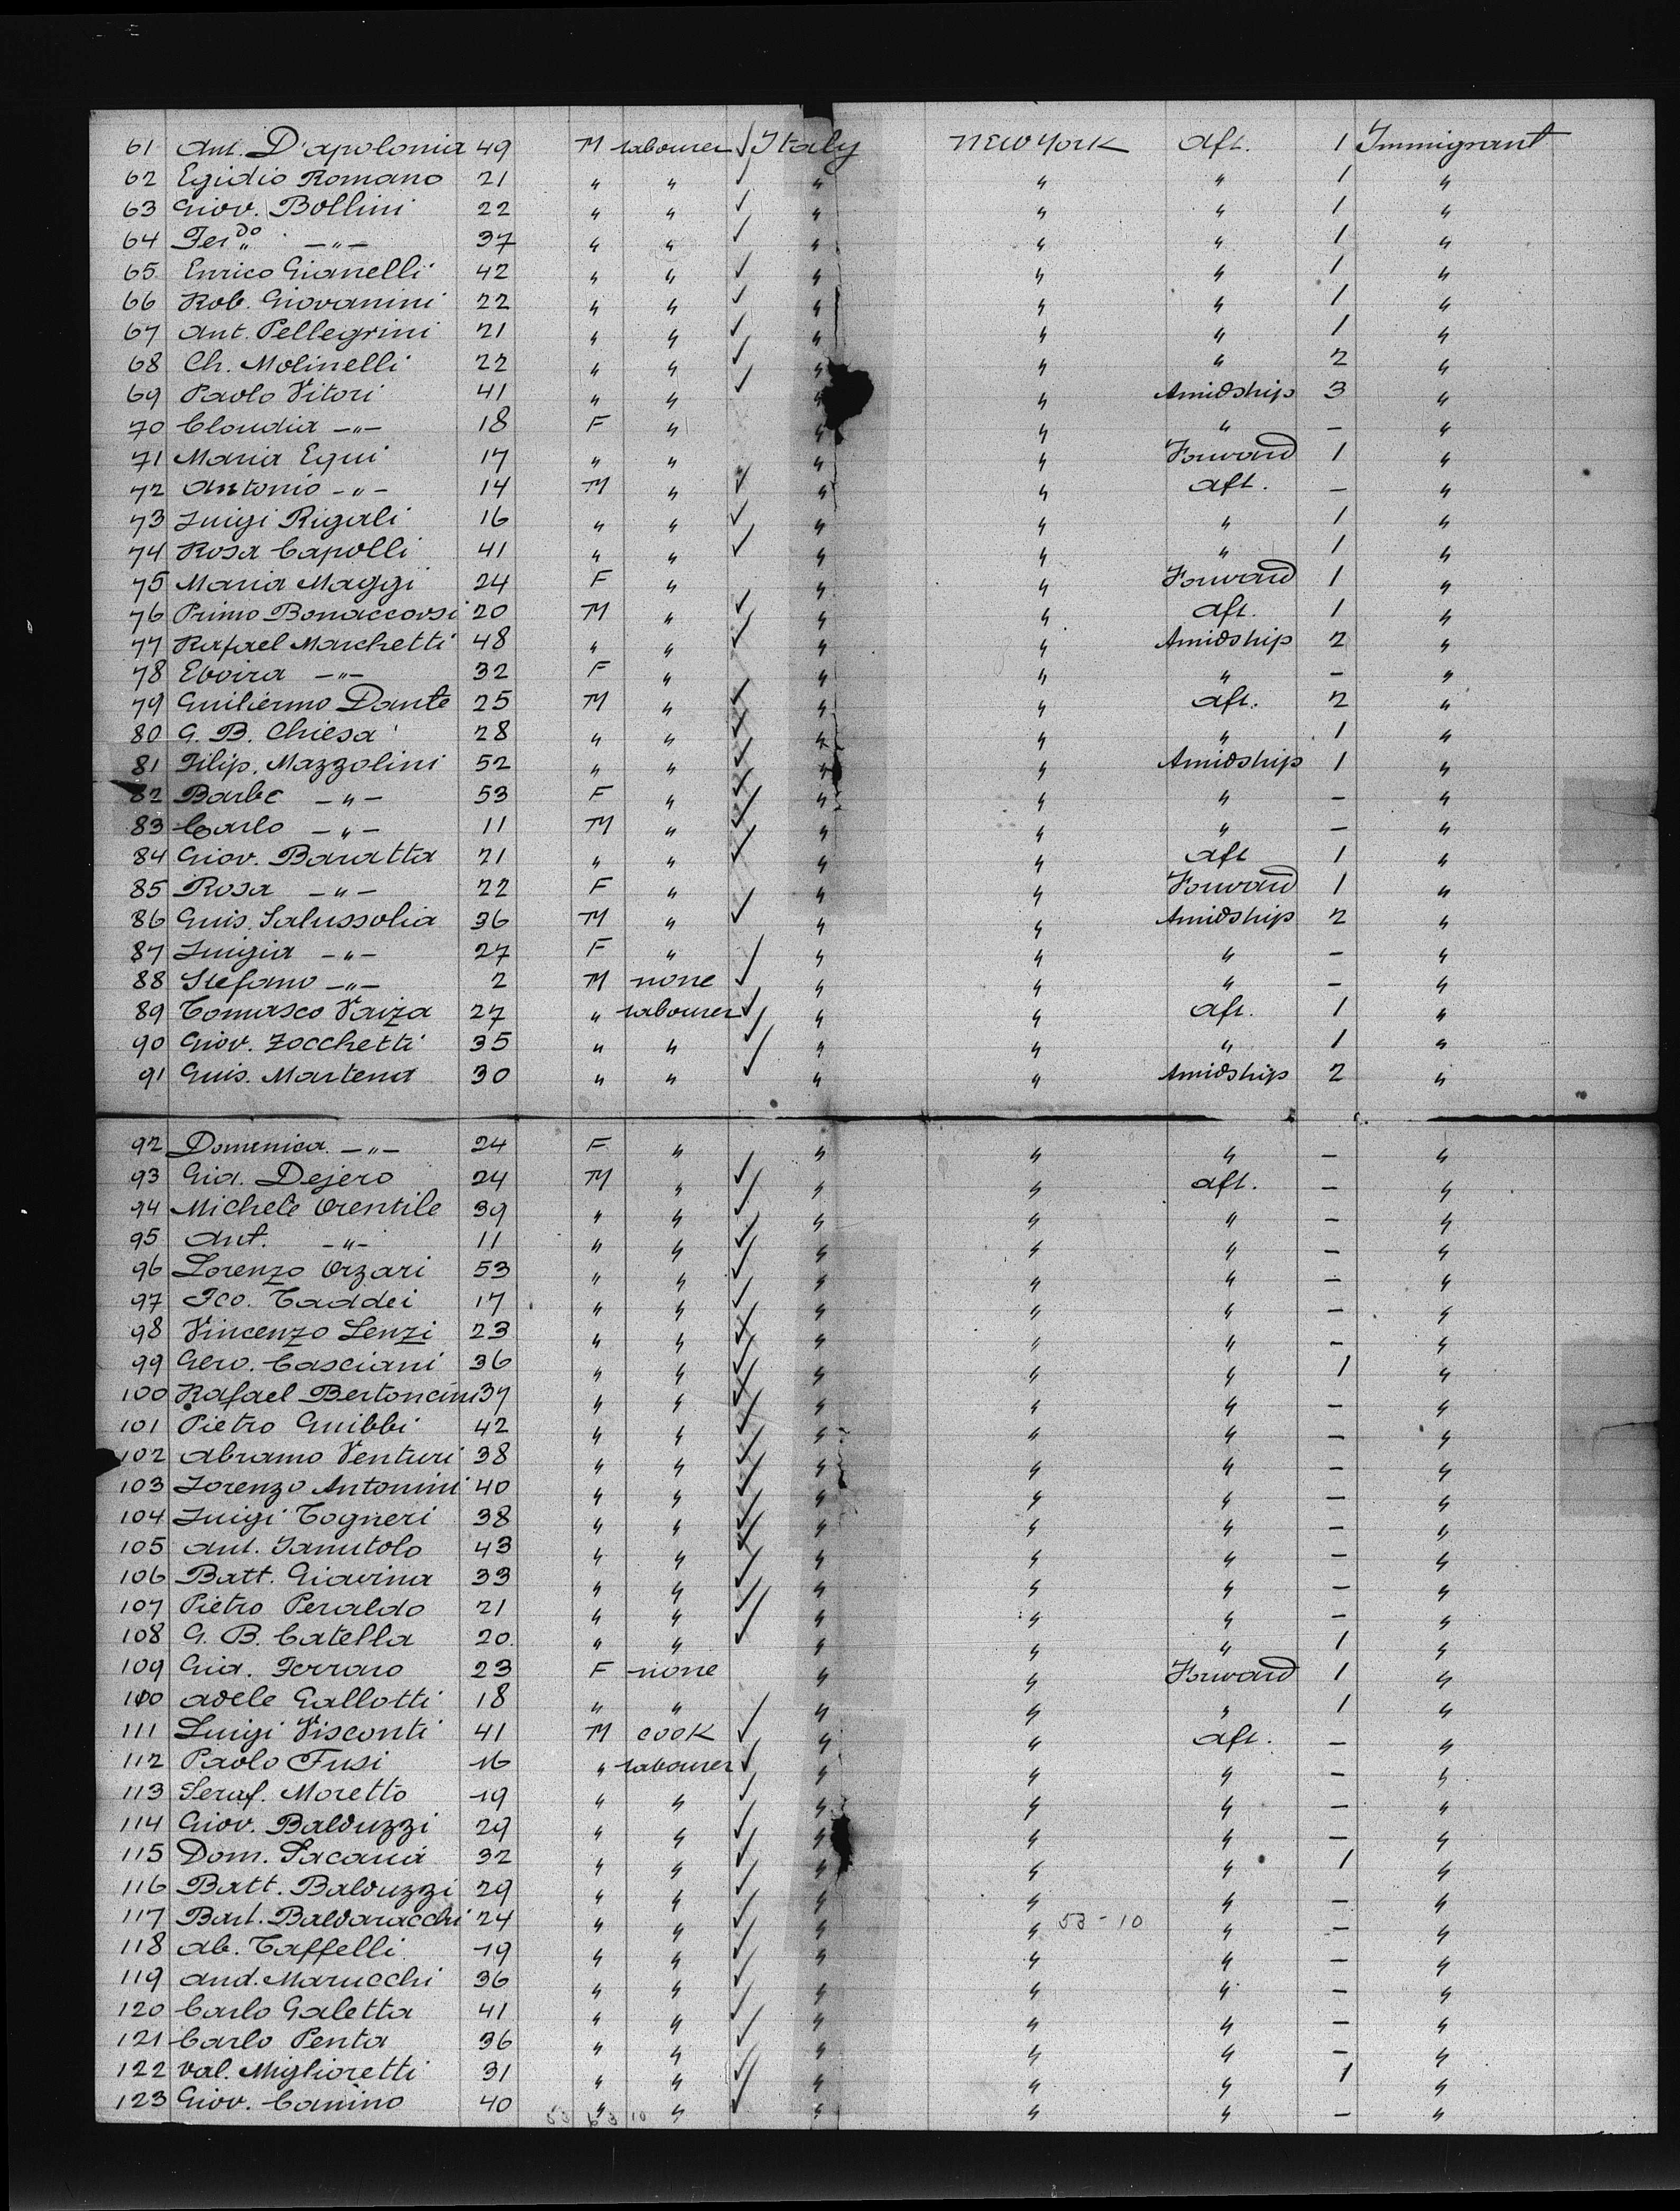 61 Ant. D'apolonia 49 M Labourer ✓ Italy New York Aft. 1 Immigrant
62 Egidio Romano 21 " " ✓ " " " 1 "
63 Giov. Bollini 22 " " ✓ " " " 1 "
64 Fer.do —"— 37 " " ✓ " " " 1 "
65 Enrico Gianelli 42 " " ✓ " " " 1 "
66 Rob. Giovanini 22 " " ✓ " " " 1 "
67 Ant. Pellegrini 21 " " ✓ " " " 1 "
68 Ch. Molinelli 22 " " ✓ " " " 2 "
69 Paolo Vitori 41 " " ✓ " " Amidship 3 "
70 Claudia —"— 18 F " " " " — "
71 Maria Equi 17 " " " " Forward 1 "
72 Antonio —"— 14 M " ✓ " " Aft. — "
73 Luigi Rigali 16 " " ✓ " " " 1 "
74 Rosa Capolli 41 " " ✓ " " " 1 "
75 Maria Maggi 24 F " " " Forward 1 "
76 Primo Bonaccorsi 20 M " ✓ " " Aft. 1 "
77 Rafael Marchetti 48 " " ✓ " " Amidship 2 "
78 Evoira —"— 32 F " " " " — "
79 Guiliermo Dante 25 M " ✓ " " Aft. 2 "
80 G. B. Chiesa 28 " " ✓ " " " 1 "
81 Filip. Mazzolini 52 " " ✓ " " Amidship 1 "
82 Barbe —"— 53 F " ✓ " " " — "
83 Carlo —"— 11 M " ✓ " " " — "
84 Giov. Baratta 21 " " ✓ " " Aft 1 "
85 Rosa —"— 22 F " " " Forward 1 "
86 Guis. Salussolia 36 M " ✓ " " Amidship 2 "
87 Luigia —"— 27 F " " " " — "
88 Stefano —"— 2 M none ✓ " " " — "
89 Tomasco Vaiza 27 " Labourer ✓ " " Aft. 1 "
90 Giov. Zocchetti 35 " " ✓ " " " 1 "
91 Guis. Martena 30 " " ✓ " " Amidship 2 "
92 Domenica —"— 24 F " " " " — "
93 Gia. Dejero 24 M " ✓ " " Aft. — "
94 Michele Orentile 39 " " ✓ " " " — "
95 Ant. —"— 11 " " ✓ " " " — "
96 Lorenzo Orzari 53 " " ✓ " " " — "
97 Fco. Taddei 17 " " ✓ " " " — "
98 Vincenzo Lenzi 23 " " ✓ " " " — "
99 Gero. Casciani 36 " " ✓ " " " 1 "
100 Rafael Bertoncini 37 " " ✓ " " " — "
101 Pietro Guibbi 42 " " ✓ " " " — "
102 Abramo Venturi 38 " " ✓ " " " — "
103 Lorenzo Antonini 40 " " ✓ " " " — "
104 Luigi Togneri 38 " " ✓ " " " — "
105 Ant. Ianutolo 43 " " ✓ " " " — "
106 Batt. Giavina 33 " " ✓ " " " — "
107 Pietro Peraldo 21 " " ✓ " " " — "
108 G. B. Catella 20 " " ✓ " " " 1 "
109 Gia. Ferraro 23 F none " " Forward 1 "
110 Adele Gallotti 18 " " " " " 1 "
111 Luigi Visconti 41 M cook ✓ " " Aft. — "
112 Paolo Fusi 16 " Labourer ✓ " " " — "
113 Seraf. Moretto 19 " " ✓ " " " — "
114 Giov. Balduzzi 29 " " ✓ " " " — "
115 Dom. Sacaria 32 " " ✓ " " " 1 "
116 Batt. Balduzzi 29 " " ✓ " " " — "
117 Bart. Baldaracchi 24 " " ✓ " " 53-10 " — "
118 Ab. Taffelli 19 " " ✓ " " " — "
119 And. Marucchi 36 " " ✓ " " " — "
120 Carlo Galetta 41 " " ✓ " " " — "
121 Carlo Penta 36 " " ✓ " " " — "
122 Val. Miglioretti 31 " " ✓ " " " 1 "
123 Giov. Canino 40 " " ✓ " " " — "